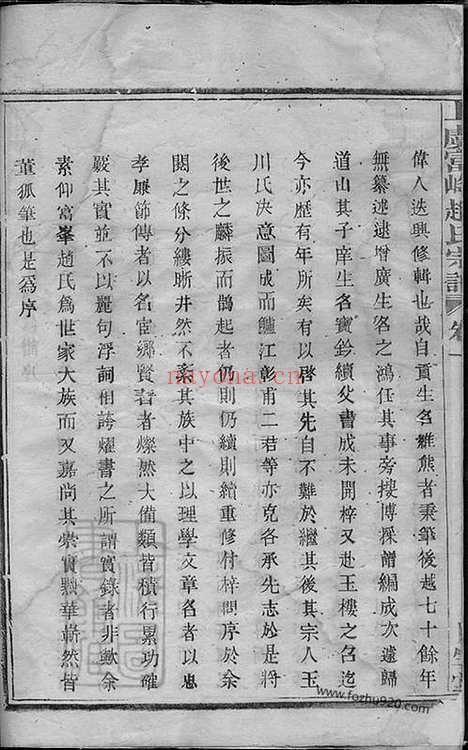 上虞富峰趙氏宗譜 卷一
偉人迭興修輯也哉自貢生名維熊者秉筆後越七十餘年
無纂述逮增廣生名之鴻任其事旁搜博採譜編成次遽歸
道山其子庠生名寶鈴續父書成未開梓又赴玉樓之召迄
今亦歷有年所矣有以啓其先自不難於繼其後其宗人玉
川氏決意圖成而鱸江彰甫二君等亦克各承先志於是將
後世之麟振而鵲起者仍續則仍續重修付梓問序於余
閱之條分縷晰井然不紊其族中之以理學文章名者以忠
孝廉節傳者以名宦鄉賢著者燦然大備類皆積行累功確
嚴其實並不以麗句浮詞相誇燿書之所謂實錄者非歟余
素仰富峯趙氏爲世家大族而又嘉尚其崇實黜華嶄然皆
董狐筆也是爲序
nayona.cn
www.fozhu920.com